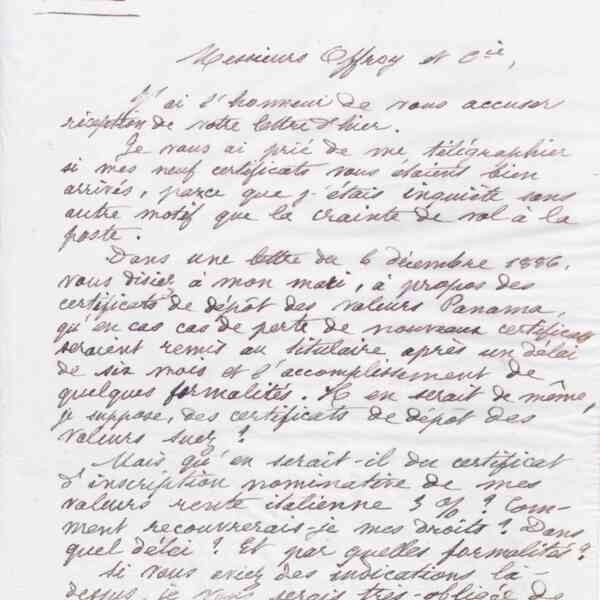 Messieurs Offroy et Cie,
J'ai l'honneur de vous accuser
réception de votre lettre d'hier.
Je vous ai prié de me télégraphier
si mes neuf certificats vous étaient bien
arrivés, parce que j'étais inquiète sans
autre motif que la crainte de vol à la
poste.
Dans une lettre du 6 décembre 1886,
vous disiez à mon mari, à propos des
certificats de dépôt des valeurs Panama,
qu'en cas cas de perte de nouveaux certificats
seraient remis au titulaire après un délai
de six mois et l'accomplissement de
quelques formalités. Il en serait de même,
je suppose, des certificats de dépôt des
valeurs Suez ?
Mais qu'en serait-il du certificat
d'inscription nominative de mes
valeurs rente italienne 3 % ? Com-
ment recouvrerais-je mes droits ? Dans
quel délai ? Et par quelles formalités ?
Si vous aviez des indications là-
dessus, je vous serais très-obligée de